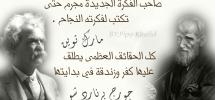 صاحب الفكرة الجديدة مجرم حتى
تكتب لفكرته النجاح .
BY:Pipo Khalid
مارك توين
كل الحقائق العظمى يطلق
عليها كفر وزندقة في بدايتها
جورج برنارد شو